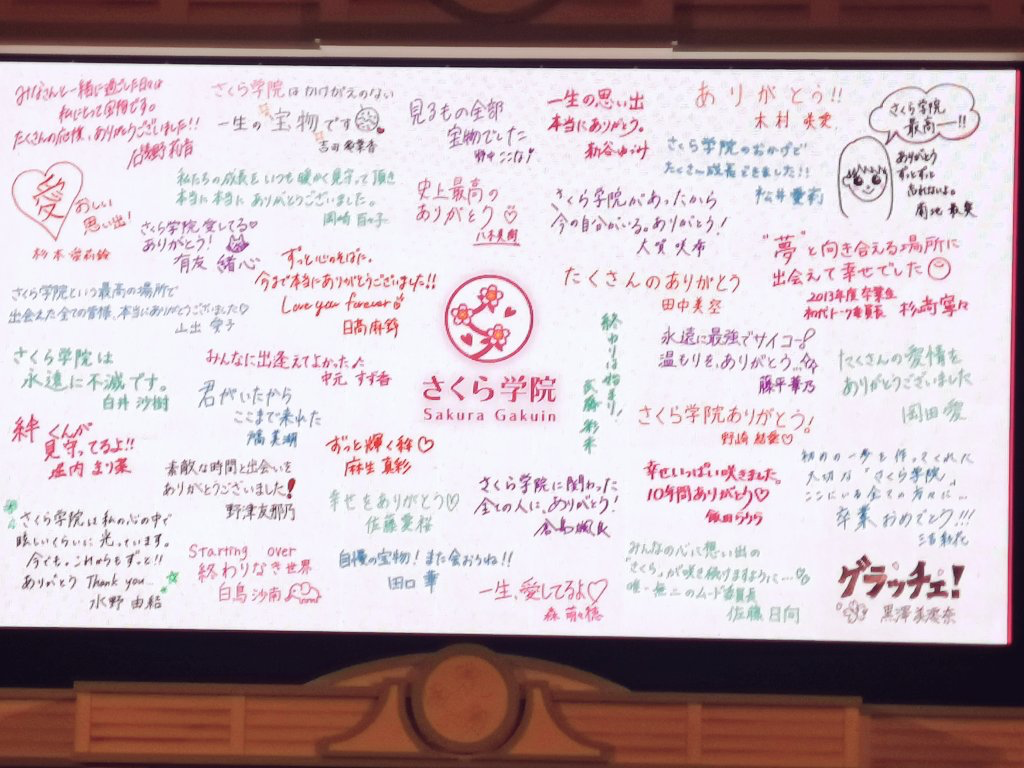 みなさんと一緒に過ごした日々は
私にとって宝物です。
たくさんの応援、ありがとうございました!!
磯野莉音
さくら学院はかけがえのない
一生の宝物です
吉田爽葉香
見るもの全部
宝物でした
野中ここな
一生の思い出
本当にありがとう。
新谷ゆづみ
ありがとう!!
木村咲愛
さくら学院
最高ー!!
ありがとう
ずっとずっと
忘れないよ。
菊地最愛
愛おしい
思い出!
杉本愛莉鈴
私たちの成長をいつも暖かく見守って頂き
本当に本当にありがとうございました。
岡崎百々子
史上最高の
ありがとう♡
八木美樹
さくら学院のおかげで
たくさん成長できました!!
松井愛莉
さくら学院愛してる♡
ありがとう!
有友緒心
さくら学院があったから
今の自分がいる。ありがとう!
大賀咲希
ずっと心のそばに。
今まで本当にありがとうございました!!
Love you forever
日髙麻鈴
"夢"と向き合える場所に
出会えて幸せでした
2013年度卒業生
初代トーク委員長 杉崎寧々
さくら学院という最高の場所で
出会えた全ての皆様、本当にありがとうございました♡
山出愛子
たくさんのありがとう
田中美空
終わりは始まり!
武藤彩未
永遠に最強でサイコー!
温もりを、ありがとう...
藤平華乃
さくら学院は
永遠に不滅です。
白井沙樹
みんなに出逢えてよかった
中元すず香
君がいたから
ここまで来れた
〆谷美湖
さくら学院
Sakura Gakuin
たくさんの愛情を
ありがとうございました
岡田愛
さくら学院ありがとう!
野崎結愛♡
絆くんが
見守ってるよ!!
堀内まり菜
ずっと輝く絆♡
麻生真彩
素敵な時間と出会いを
ありがとうございました!
野津友那乃
幸せをありがとう♡
佐藤愛桜
さくら学院に関わった
全ての人に、ありがとう!
倉島颯良
幸せいっぱい咲きました。
10年間ありがとう♡
飯田らうら
初めの一歩を作ってくれた
大切な「さくら学院」。
ここにいる全ての方々に...
卒業おめでとう!!!
三吉彩花
さくら学院は私の心の中で
眩しいくらいに光っています。
今でも。これからもずっと!!
ありがとう Thank you...
水野由結
Starting over
終わりなき世界
白鳥沙南
自慢の宝物!また会おうね!!
田口華
一生、愛してるよ♡
森萌々穂
みんなの心に想い出の
"さくら"が咲き続けますように...
唯一無二のムード委員長
佐藤日向
グラッチェ!
黒澤美澪奈